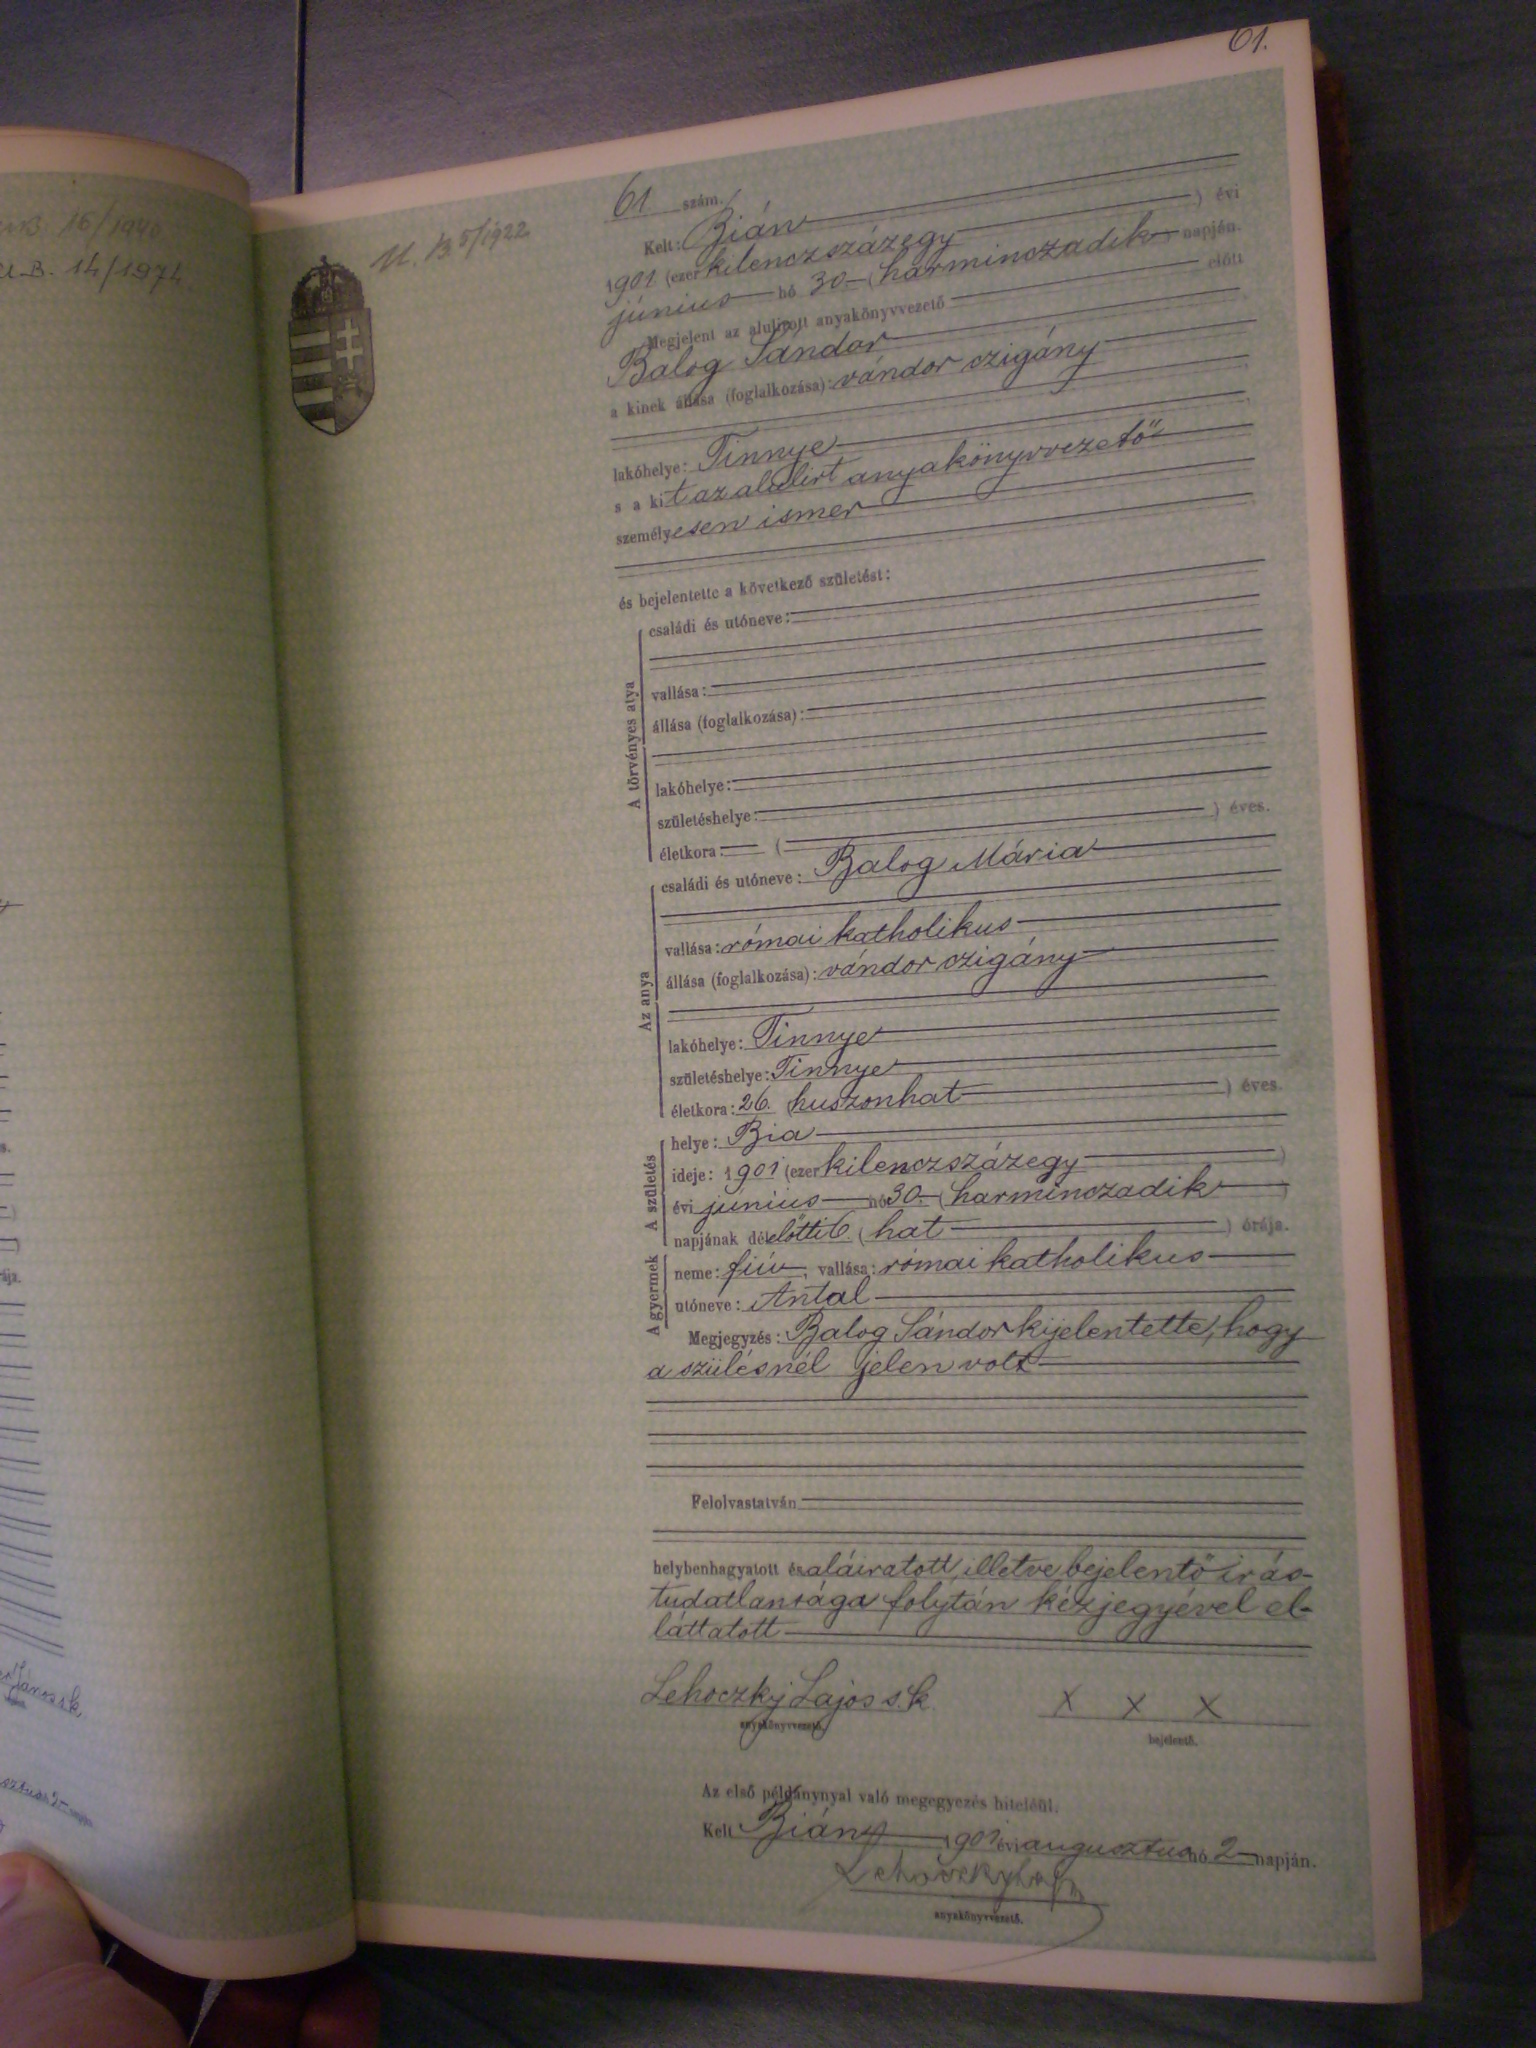 61.
16/1940
14/1974
U. B 5/1922
61 szám.
Kelt: Bián
) évi
1901 (ezer kilenczszázegy
június hó 30 (harminczadik napján.
Megjelent az alulirott anyakönyvvezető előtt
Balog Sándor
a kinek állása (foglalkozása): vándor czigány
lakóhelye: Tinnye
s a kit az alulirt anyakönyvvezető
személyesen ismer
és bejelentette a következő születést:
A törvényes atya
családi és utóneve:
vallása:
állása (foglalkozása):
lakóhelye:
születéshelye:
életkora: ( ) éves.
Az anya
családi és utóneve: Balog Mária
vallása: római katholikus
állása (foglalkozása): vándor czigány
lakóhelye: Tinnye
születéshelye: Tinnye
életkora: 26. (huszonhat ) éves.
A születés
helye: Bia
ideje: 1901 (ezer kilenczszázegy )
évi június hó 30. (harminczadik )
napjának délelőtti 6. (hat ) órája.
A gyermek
neme: fiú, vallása: római katholikus
utóneve: Antal
Megjegyzés: Balog Sándor kijelentette, hogy
a szülésnél jelen volt
Felolvastatván
helybenhagyatott és aláiratott, illetve bejelentő irás-
tudatlansága folytán kézjegyével el-
láttatott
Lehoczky Lajos s. k. x x x
anyakönyvvezető. bejelentő.
Az első példánynyal való megegyezés hiteléül.
Kelt Bián 1901 évi augusztus hó 2 napján.
Lehoczky Lajos
anyakönyvvezető.